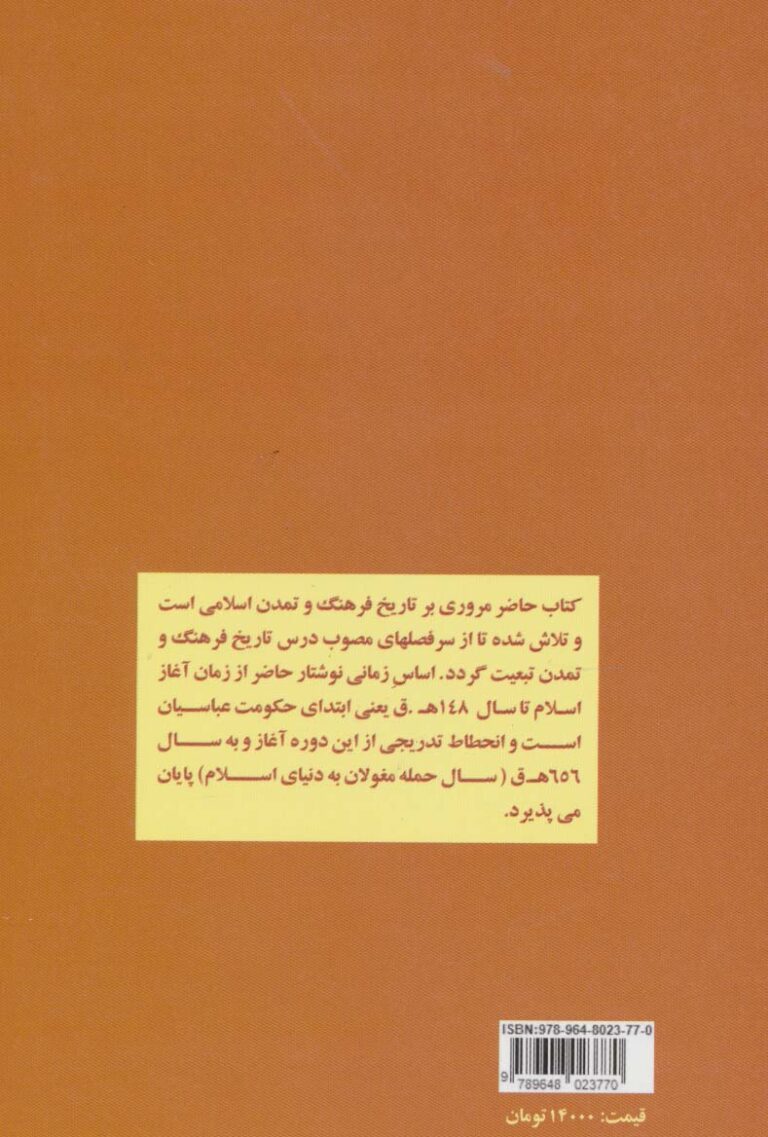 کتاب حاضر مروری بر تاریخ فرهنگ و تمدن اسلامی است
و تلاش شده تا از سرفصلهای مصوب درس تاریخ فرهنگ و
تمدن تبعیت گردد. اساسِ زمانی نوشتار حاضر از زمان آغاز
اسلام تا سال ۱٤۸هـ .ق یعنی ابتدای حکومت عباسیان
است و انحطاط تدریجی از این دوره آغاز و به سال
٦٥٦هـ ق ( سال حمله مغولان به دنیای اسلام) پایان
می پذیرد.
ISBN:978-964-8023-77-0
9 789648 023770
قیمت: ۱۴۰۰۰ تومان